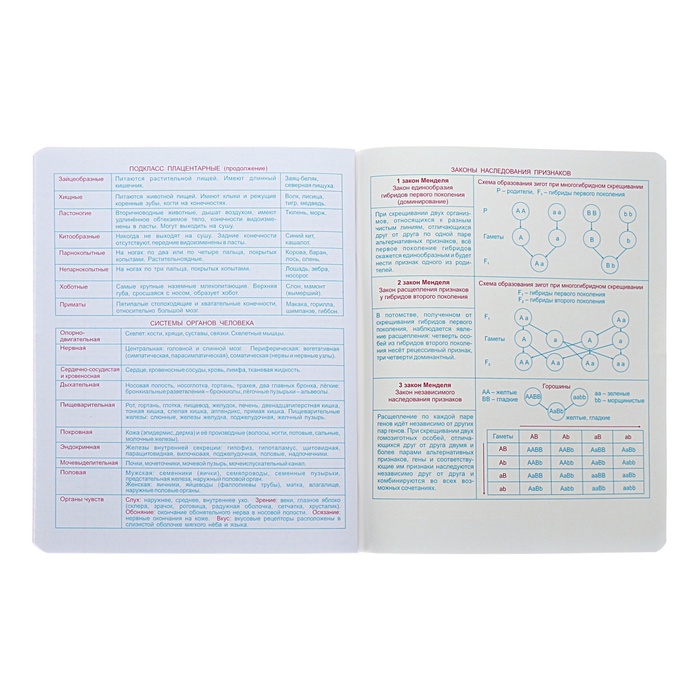 ПОДКЛАСС ПЛАЦЕНТАРНЫЕ (продолжение)
Зайцеобразные
Питаются растительной пищей. Имеют длинный
кишечник.
Заяц-беляк,
северная пищуха
Хищные
Питаются животной пищей. Имеют клыки и режущие
коренные зубы, когти на конечностях.
Волк, лисица,
тигр, медведь.
Ластоногие
Вторичноводные животные, дышат воздухом, имеют
удлинённое обтекаемое тело, конечности видоизме-
нены в ласты. Могут выходить на сушу.
Тюлень, морж.
Китообразные
Никогда не выходят на сушу. Задние конечности
отсутствуют, передние видоизменены в ласты.
Синий кит,
кашалот.
Парнокопытные
На ногах по два или по четыре пальца, покрытых
копытами. Растительноядные.
Корова, баран,
лось, олень.
Непарнокопытные
На ногах по три пальца, покрытых копытами.
Лошадь, зебра,
носорог.
Хоботные
Самые крупные наземные млекопитающие. Верхняя
губа, сросшаяся с носом, образует хобот.
Слон, мамонт
(вымерший).
Приматы
Пятипалые стопоходящие и хватательные конечности,
относительно большой мозг.
Макака, горилла,
шимпанзе, гиббон.
СИСТЕМЫ ОРГАНОВ ЧЕЛОВЕКА
Опорно-
двигательная
Скелет: кости, хрящи, суставы, связки. Скелетные мышцы.
Нервная
Центральная: головной и спинной мозг. Периферическая: вегетативная
(симпатическая, парасимпатическая), соматическая (нервы и нервные узлы).
Сердечно-сосудистая
и кровеносная
Сердце, кровеносные сосуды, кровь, лимфа, тканевая жидкость.
Дыхательная
Носовая полость, носоглотка, гортань, трахея, два главных бронха, лёгкие:
бронхиальные разветвления – бронхиолы, лёгочные пузырьки – альвеолы.
Пищеварительная
Рот, гортань, глотка, пищевод, желудок, печень, двенадцатиперстная кишка,
тонкая кишка, слепая кишка, аппендикс, прямая кишка. Пищеварительные
железы: слюнные, железы желудка, поджелудочная, желчный пузырь.
Покровная
Кожа (эпидермис, дерма) и её производные (волосы, ногти, потовые, сальные,
молочные железы).
Эндокринная
Железы внутренней секреции: гипофиз, гипоталамус, щитовидная,
паращитовидная, вилочковая, поджелудочная, половые, надпочечники.
Мочевыделительная
Почки, мочеточники, мочевой пузырь, мочеиспускательный канал.
Половая
Мужская: семенники (яички), семяпроводы, семенные пузырьки,
предстательная железа, наружный половой орган.
Женская: яичники, яйцеводы (фаллопиевы трубы), матка, влагалище,
наружные половые органы.
Органы чувств
Слух: наружнее, среднее, внутреннее ухо. Зрение: веки, глазное яблоко
(склера, зрачок, роговица, радужная оболочка, сетчатка, хрусталик).
Обоняние: окончание обонятельного нерва в носовой полости. Осязание:
нервные окончания на коже. Вкус: вкусовые рецепторы расположены в
слизистой оболочке мягкого нёба и языка.
ЗАКОНЫ НАСЛЕДОВАНИЯ ПРИЗНАКОВ
1 закон Менделя
Закон единообразия
гибридов первого поколения
(доминирование)
При скрещивании двух организ-
мов, относящихся к разным
чистым линиям, отличающихся
друг от друга по одной паре
альтернативных признаков, всё
первое поколение гибридов
окажется единообразным и будет
нести признак одного из роди-
телей.
Схема образования зигот при многогибридном скрещивании
P – родители, F₁ – гибриды первого поколения
P
A A
a a
B B
b b
Гаметы
A
a
B
b
F₁
A a
B b
2 закон Менделя
Закон расщепления признаков
у гибридов второго поколения
В потомстве, полученном от
скрещивания гибридов первого
поколения, наблюдается явле-
ние расщепления: четверть осо-
бей из гибридов второго поколе-
ния несёт рецессивный признак,
три четверти доминантный.
Схема образования зигот при многогибридном скрещивании
F₁ – гибриды первого поколения
F₂ – гибриды второго поколения
F₁
A a
A a
Гаметы
A
a
A
a
F₂
A A
A a
A a
a a
3 закон Менделя
Закон независимого
наследования признаков
Расщепление по каждой паре
генов идёт независимо от других
пар генов. При скрещивании двух
гомозиготных особей, отлича-
ющихся друг от друга двумя и
более парами альтернативных
признаков, гены и соответству-
ющие им признаки наследуются
независимо друг от друга и
комбинируются во всех воз-
можных сочетаниях.
Горошины
AA – желтые
BB – гладкие
AABB
aabb
AaBb
aa – зеленые
bb – морщинистые
желтые, гладкие
Гаметы AB Ab aB ab
AB AABB AABb AaBB AaBb
Ab AABb AAbb AaBb Aabb
aB AaBB AaBb aaBB aaBb
ab AaBb Aabb aaBb aabb